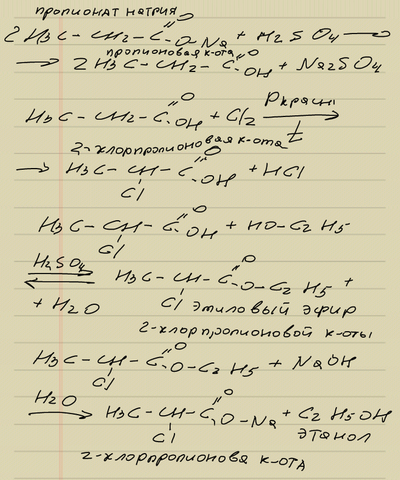 пропионат натрия
2 H3C – CH2 – C =O O Na + H2SO4 →
пропионовая к-ота
→ 2 H3C – CH2 – C =O OH + Na2SO4
H3C – CH2 – C =O OH + Cl2 Pкрасн t →
2-хлорпропионовая к-ота
→ H3C – CH – C =O OH + HCl
Cl
H3C – CH – C =O OH + HO–C2H5
Cl
H2SO4 ⇄ H3C – CH – C =O O–C2H5 +
+ H2O Cl этиловый эфир
2-хлорпропионовой к-оты
H3C – CH – C =O O–C2H5 + NaOH
Cl
H2O → H3C – CH – C =O O–Na + C2H5OH
Cl этанол
2-хлорпропионова к-ота